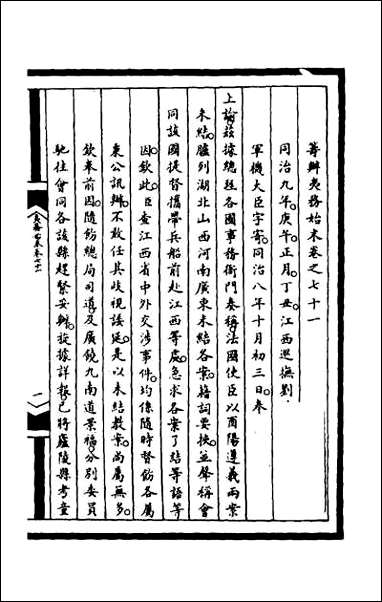 籌辦夷務始末卷之七十一
同治九年庚午正月丁丑江西巡撫劉
軍機大臣字寄同治八年十月初三日奉
上諭茲據總理各國事務衙門奏稱法國使臣以酉陽遵義兩案
未結臚列湖北山西河南廣東未結各案藉詞要挾並聲稱會
同該國提督攜帶兵船前赴江西等處急求各案了結等語等
因欽此臣查江西省中外交涉事件均係隨時督飭各屬
東公訊辦不敢任其歧視諉延是以未結教案尚屬無多
欽奉前因隨飭總局司道及廣饒九南道景福分別委員
馳往會同各該縣趕緊妥辦旋據詳報已將廬陵縣考童